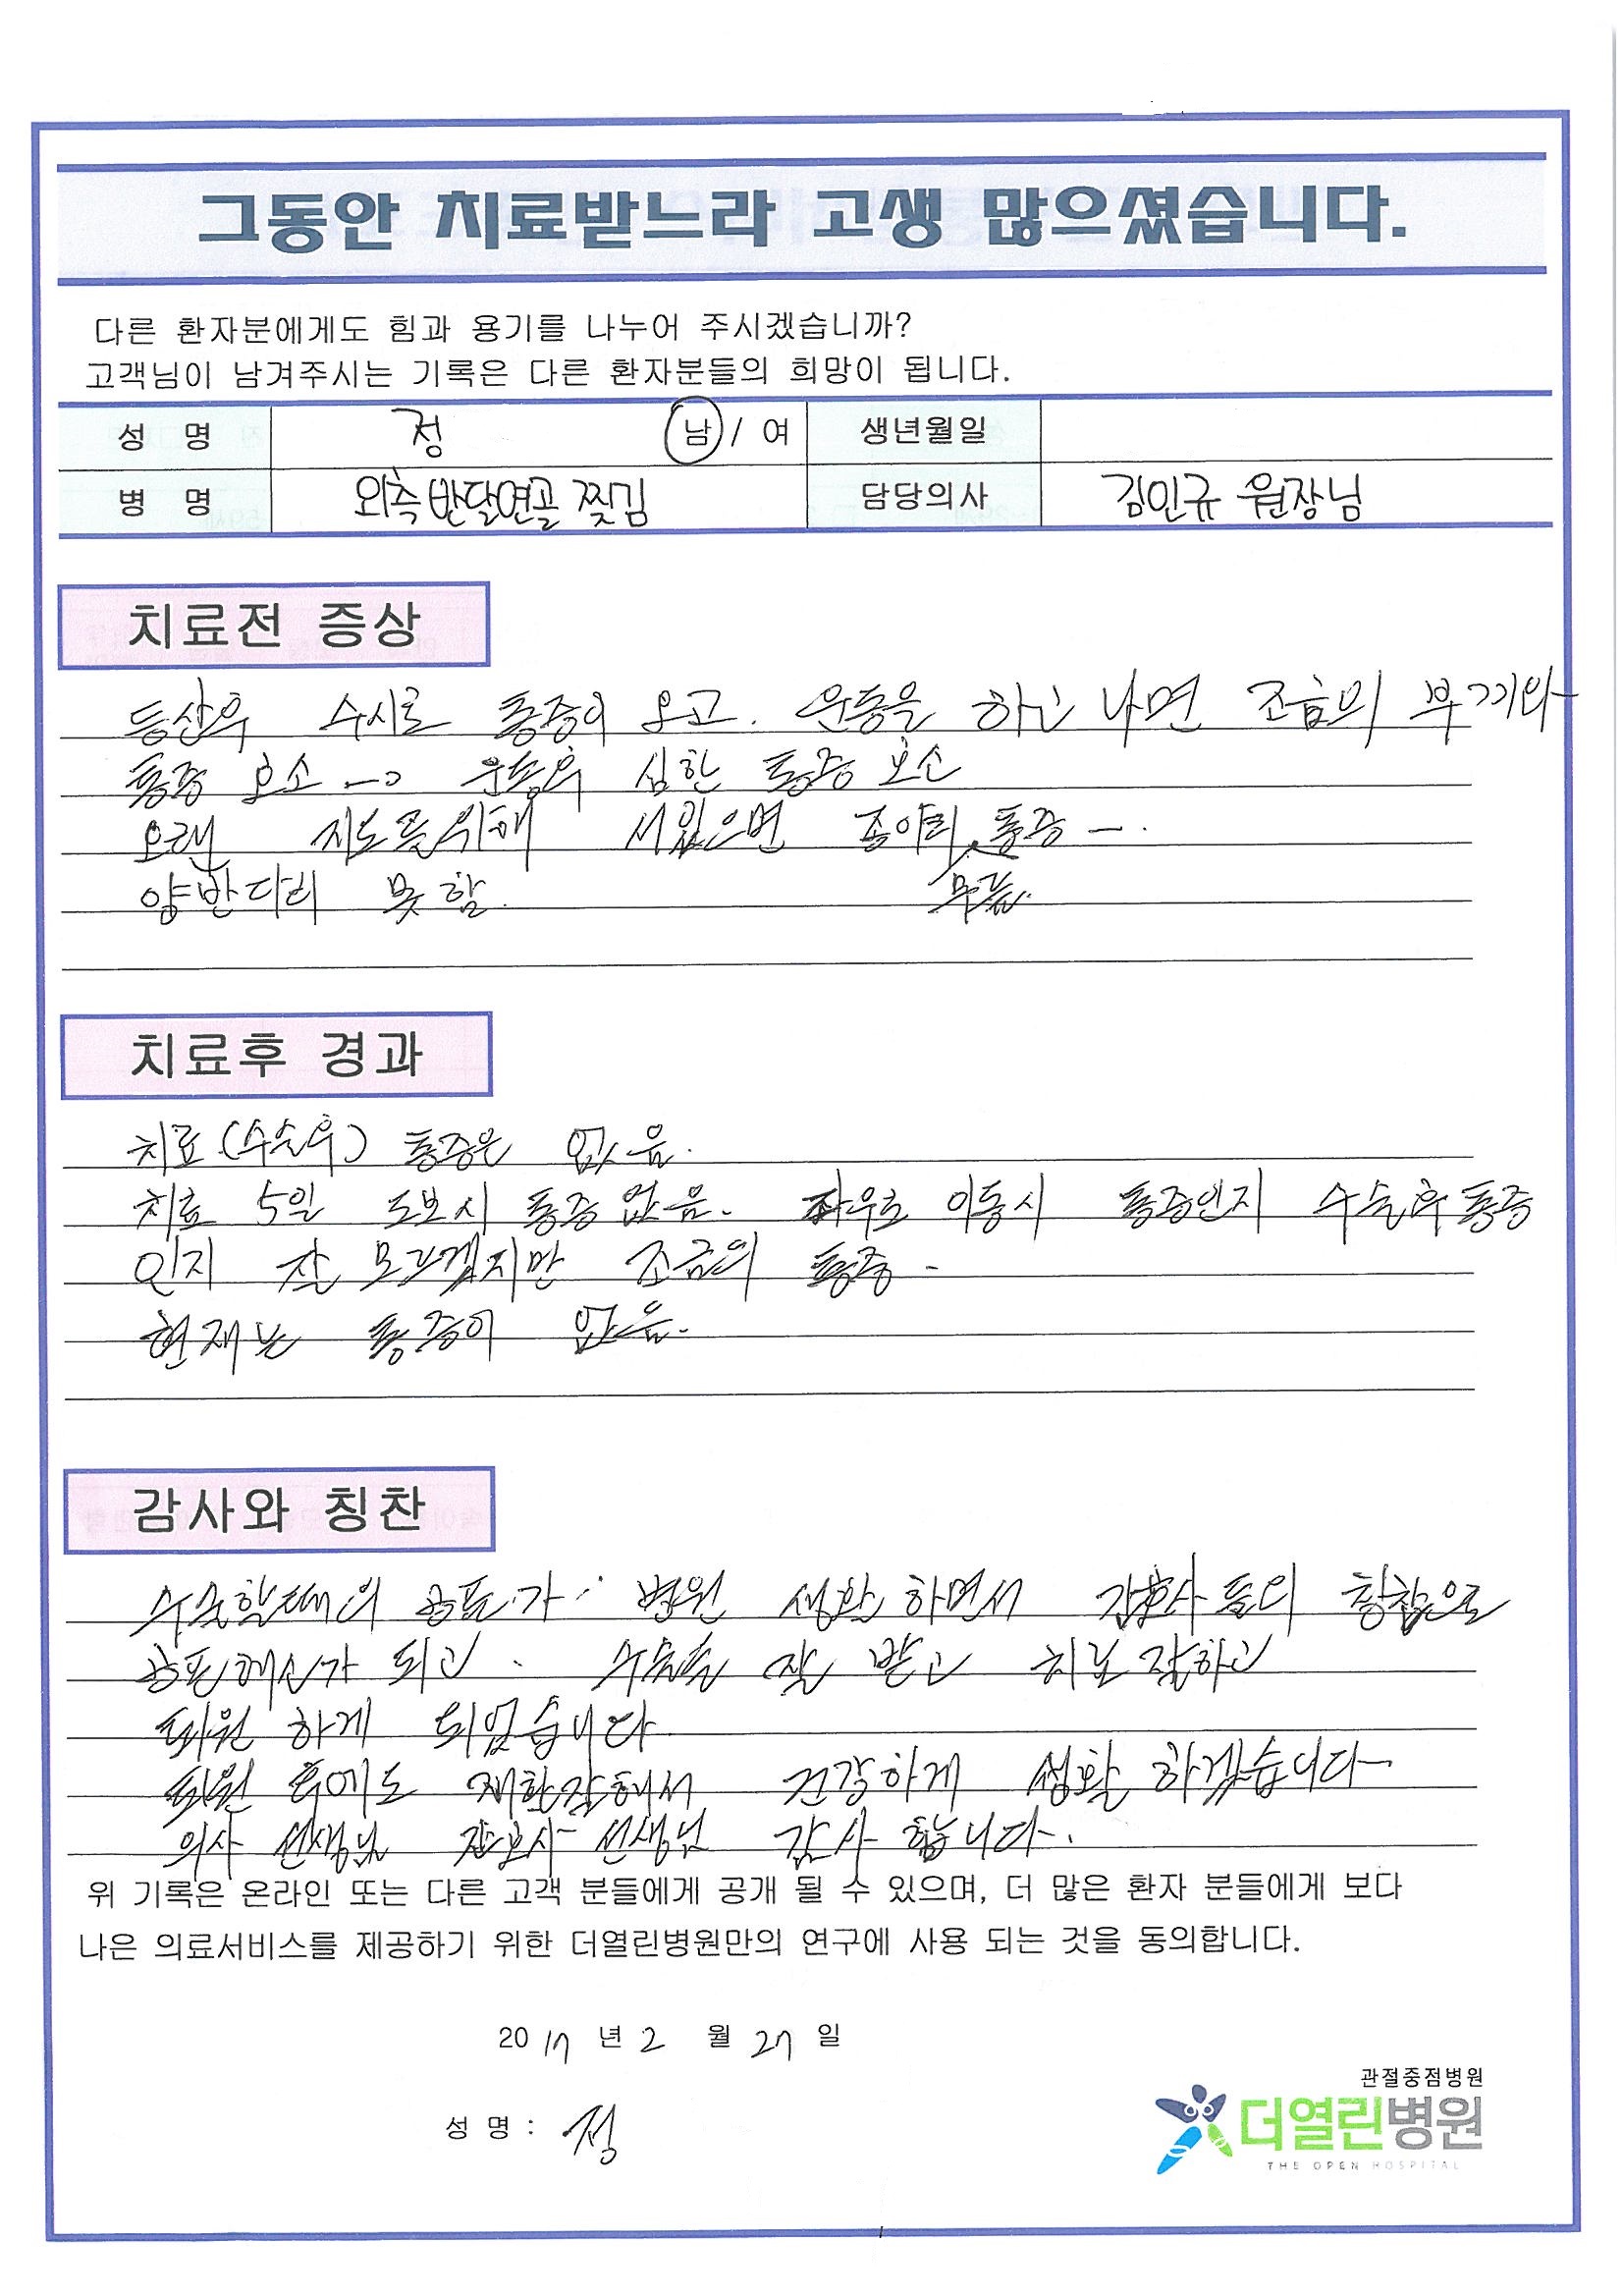 그동안 치료받느라 고생 많으셨습니다.
다른 환자분에게도 힘과 용기를 나누어 주시겠습니까?
고객님이 남겨주시는 기록은 다른 환자분들의 희망이 됩니다.
성 명 정 남 / 여 생년월일
병 명 외측 반달연골 찢김 담당의사 김인규 원장님
치료전 증상
등산후 수시로 통증이 오고. 운동을 하고 나면 조금의 부기와
통증 호소 --> 운동후 심한 통증 호소
오랜 지도를 위해 서있으면 종아리, 통증 —.
양반다리 못함. 무릎.
치료후 경과
치료(수술후) 통증은 없음.
치료 5일 도보시 통증 없음. 좌우로 이동시 통증인지 수술후 통증
인지 잘 모르겠지만 조금의 통증 -
현재는 통증이 없음.
감사와 칭찬
수술할때의 공포가 병원 생활 하면서 간호사들의 칭찬으로
공포해소가 되고. 수술을 잘 받고 치료 잘하고
퇴원 하게 되었습니다
퇴원 후에도 재활잘해서 건강하게 생활 하겠습니다
의사 선생님 간호사 선생님 감사 합니다.
위 기록은 온라인 또는 다른 고객 분들에게 공개 될 수 있으며, 더 많은 환자 분들에게 보다
나은 의료서비스를 제공하기 위한 더열린병원만의 연구에 사용 되는 것을 동의합니다.
2017 년 2 월 27 일
성 명 : 정
관절중점병원
더열린병원
THE OPEN HOSPITAL